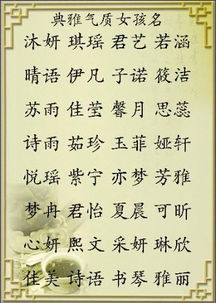 典雅气质女孩名
沐妍 琪瑶 君艺 若涵
晴语 伊凡 子诺 筱洁
苏雨 佳莹 馨月 思蕊
诗雨 茹珍 玉菲 娅轩
悦瑶 紫宁 亦梦 芳雅
梦冉 君怡 夏晨 可昕
心妍 熙文 采妍 琳欣
佳美 诗语 书琴 雅丽